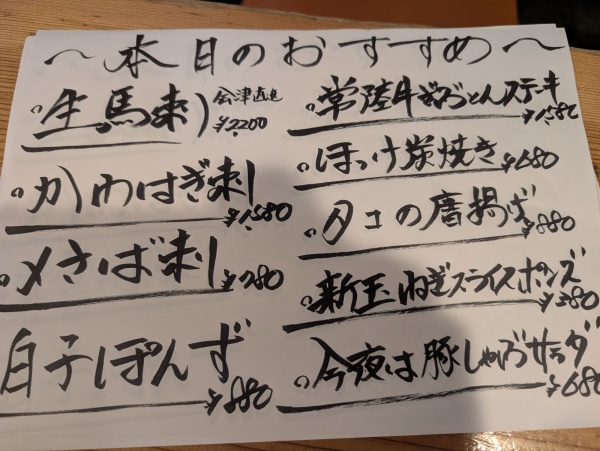 〜本日のおすすめ〜
生馬刺 会津直送 ¥2200
かわはぎ刺 ¥1,580
〆さば刺 ¥780
白子ぽんず ¥880
常陸牛さぶとんステーキ ¥1,580
ほっけ炭焼き ¥680
タコの唐揚げ ¥880
新玉ねぎスライスポンズ ¥380
今夜は豚しゃぶサラダ ¥680